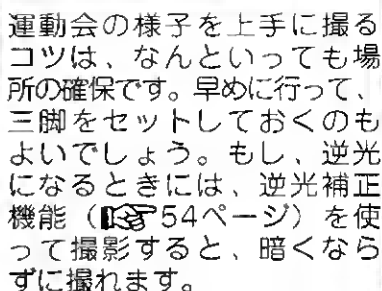 運動会の様子を上手に撮る
コツは、なんといっても場
所の確保です。早めに行って、
三脚をセットしておくのも
よいでしょう。もし、逆光
になるときには、逆光補正
機能（☞54ページ）を使
って撮影すると、暗くなら
ずに撮れます。